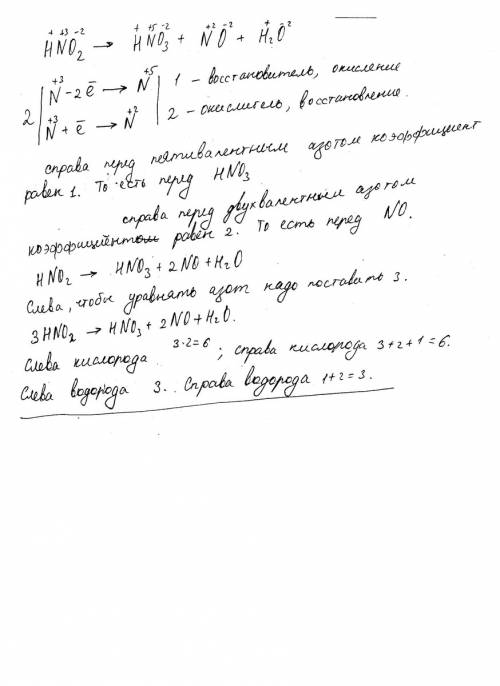 H⁺N⁺³O₂⁻² → H⁺N⁺⁵O₃⁻² + N⁺²O⁻² + H₂⁺O⁻²
2 | N⁺³ - 2ē → N⁺⁵ | 1 - восстановитель, окисление
N⁺³ + ē → N⁺² | 2 - окислитель, восстановление.
справа перед пятивалентным азотом коэффициент
равен 1. То есть перед HNO₃
справа перед двухвалентным азотом
коэффициентом равен 2. То есть перед NO.
HNO₂ → HNO₃ + 2NO + H₂O
Слева, чтобы уравнять азот надо поставить 3.
3HNO₂ → HNO₃ + 2NO + H₂O.
Слева кислорода 3·2=6 ; справа кислорода 3+2+1=6.
Слева водорода 3.. Справа водорода 1+2=3.